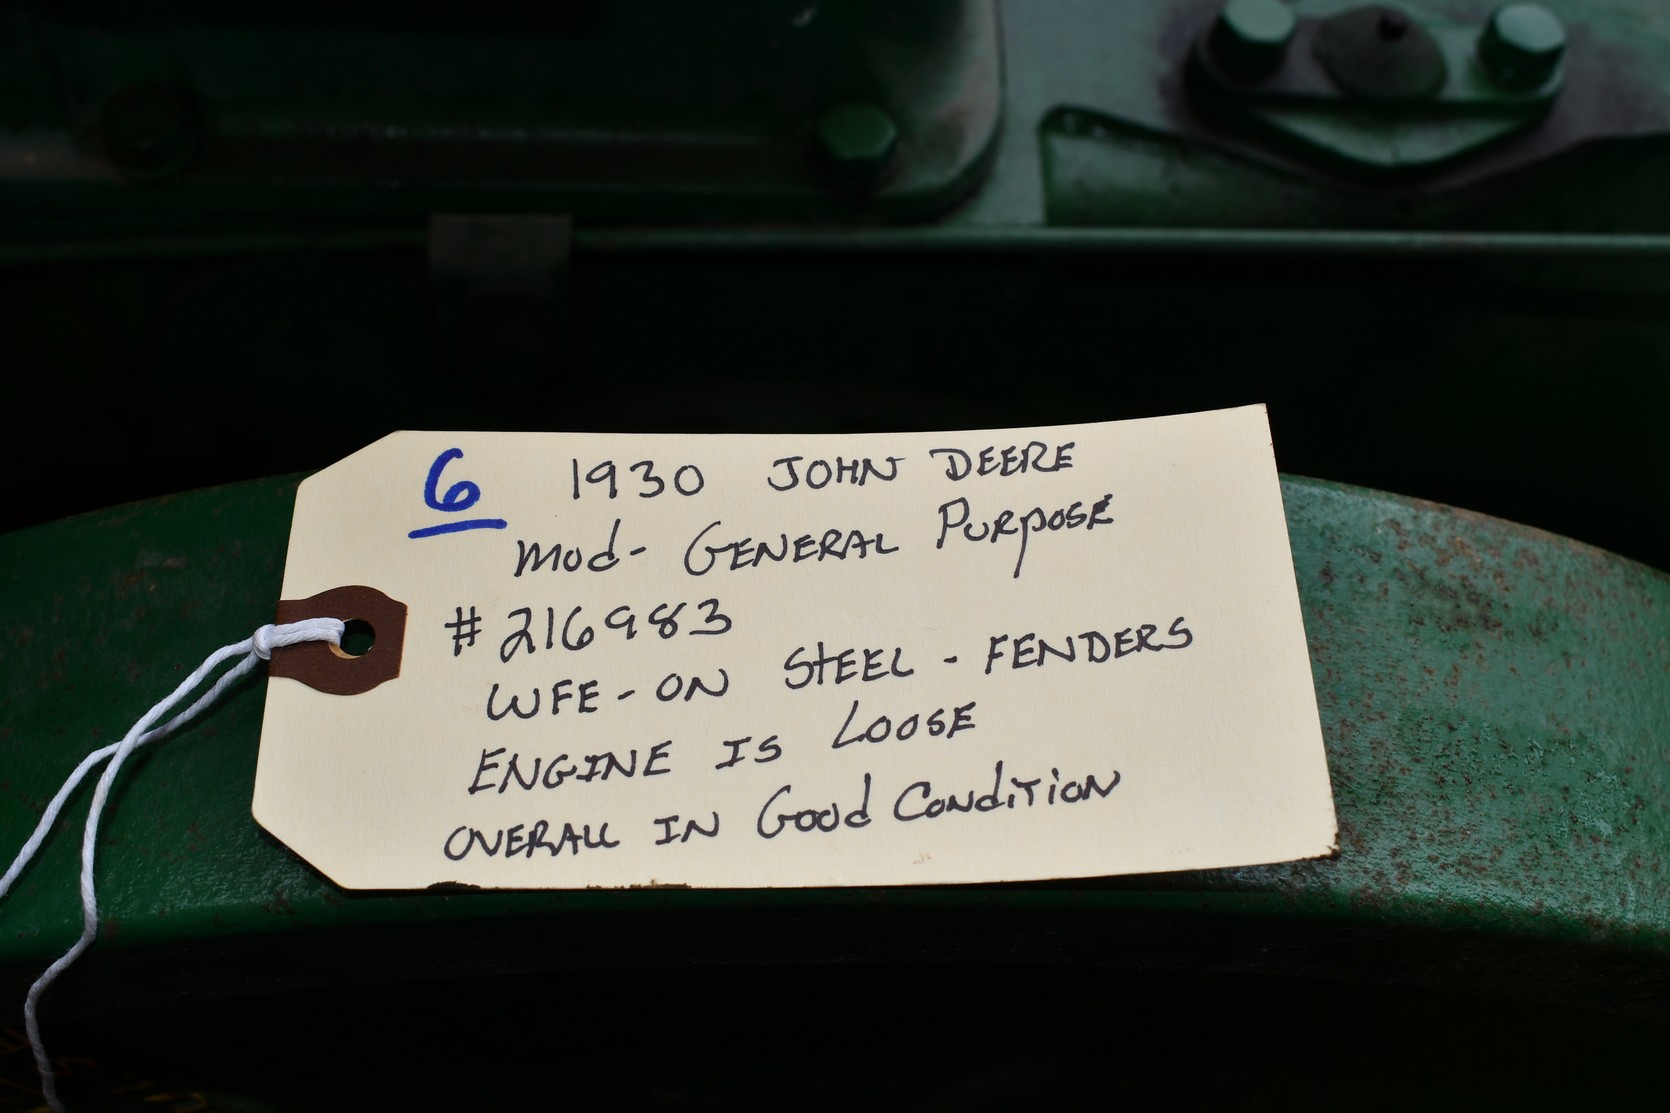 6 1930 JOHN DEERE
Mod- GENERAL PURPOSE
#216983
WFE-ON STEEL - FENDERS
ENGINE IS LOOSE
OVERALL IN Good Condition